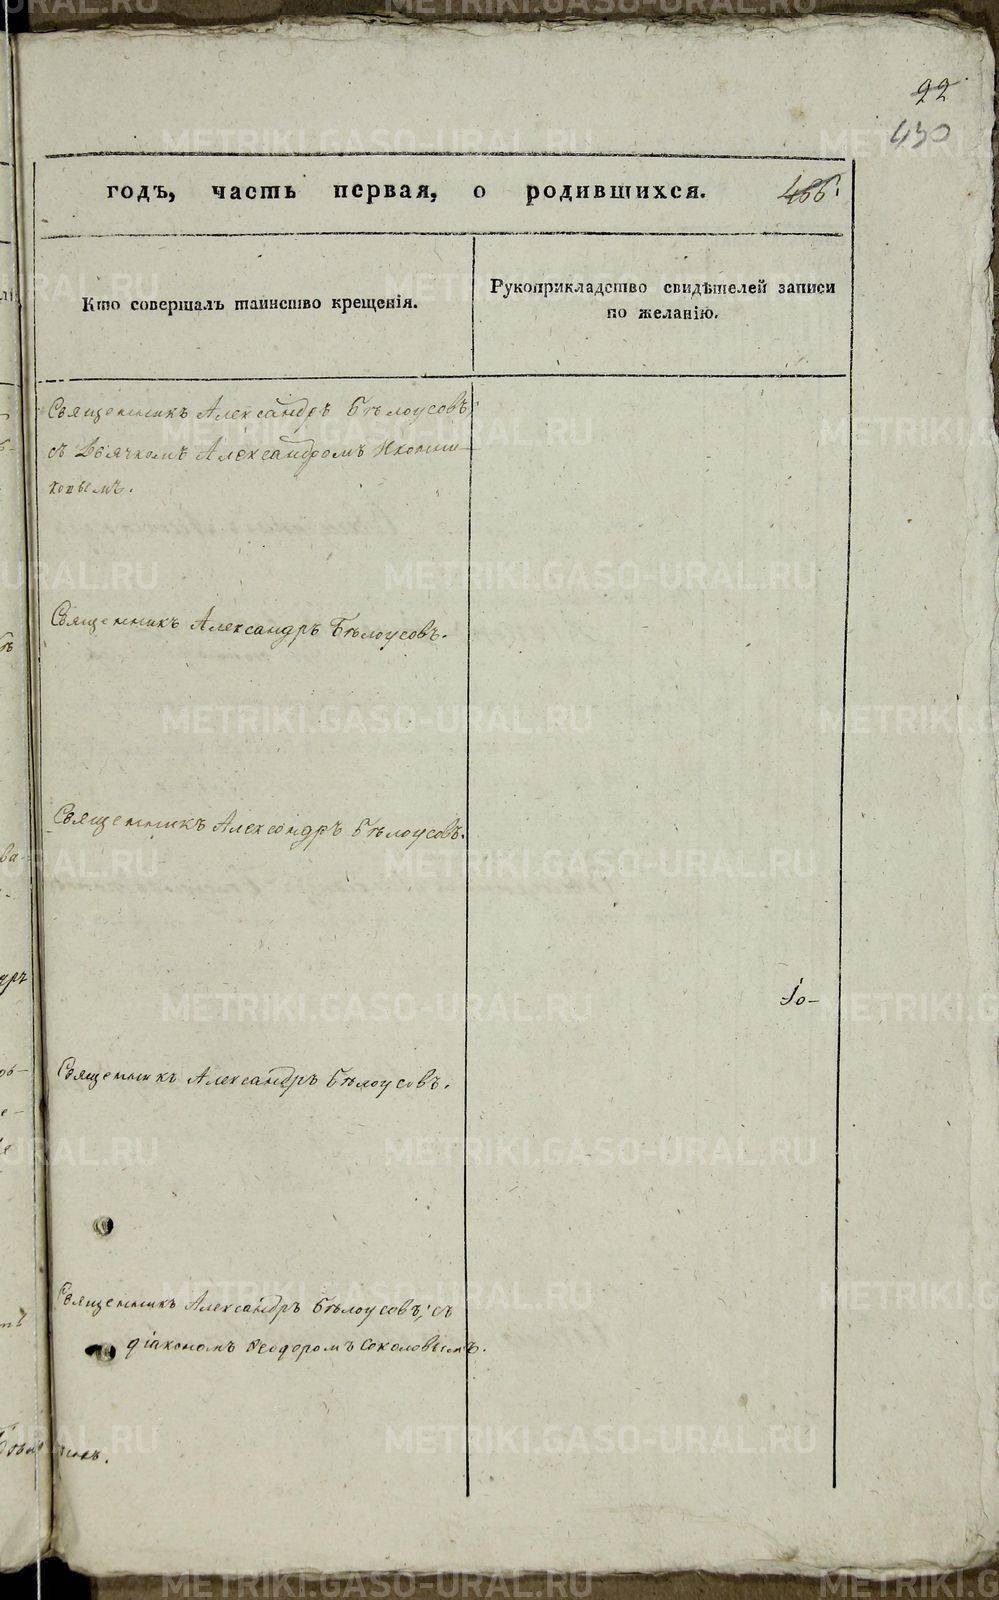 22
430
годъ, часть первая, о родившихся. 466.
Кто совершалъ таинство крещенія.
Рукоприкладство свидѣтелей записи
по желанію.
Священникъ Александръ Бѣлоусовъ,
съ Дьячкомъ Александромъ Икони-
ковымъ.
Священникъ Александръ Бѣлоусовъ.
Священникъ Александръ Бѣлоусовъ.
Іо-
Священникъ Александръ Бѣлоусовъ.
Священникъ Александръ Бѣлоусовъ, съ
діакономъ Ѳеодоромъ Соколовымъ.
METRIKI.GASO-URAL.RU